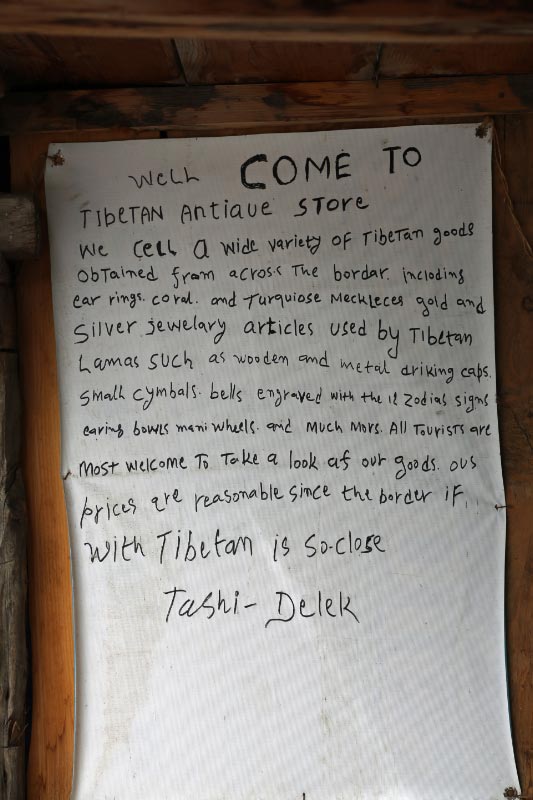 WELL COME TO
TIBETAN Antique STORE
We Cell a wide variety OF TIBETan goods
OBTained from across The bordar. including
ear rings. coral. and Turquiose Meckleces gold and
Silver jewelary articles used by TIBetan
Lamas SUCH as wooden and metal driking caps.
Small Cymbals. bells engraved with the 12 Zodias signs
earing bowls mani wheels. and Much Mors. All Tourists are
Most welcome To Take a look af our goods. ous
prices are reasonable since the border if
with Tibetan is so-close
Tashi- Delek